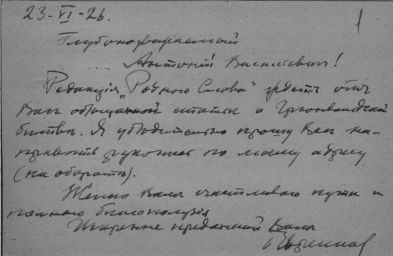 23-VI-26.
1
Глубокоуважаемый
Антоний Васильевич!
Редакция „Родного Слова" ждетъ отъ
Васъ обѣщанной статьи о Грюнвальдской
битвѣ. Я убѣдительно прошу Васъ на-
править рукопись по моему адресу
(на оборотѣ).
Желаю Вамъ счастливаго пути и
полнаго благополучія
Искренне преданный Вамъ